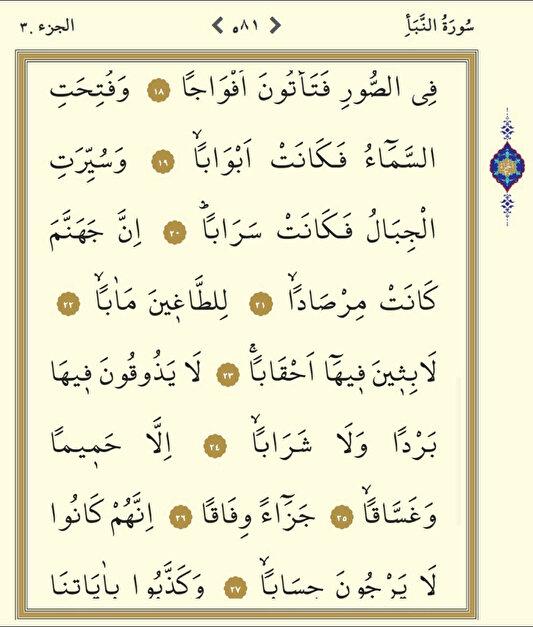 سُورَةُ النَّبَأِ ٥٨١ الجزء ٣٠
فِى الصُّورِ فَتَأْتُونَ اَفْوَاجًا ١٨ وَفُتِحَتِ
السَّمَٓاءُ فَكَانَتْ اَبْوَابًاۙ ١٩ وَسُيِّرَتِ
الْجِبَالُ فَكَانَتْ سَرَابًاۜ ٢٠ اِنَّ جَهَنَّمَ
كَانَتْ مِرْصَادًاۙ ٢١ لِلطَّاغ۪ينَ مَاٰبًاۙ ٢٢
لَابِث۪ينَ ف۪يهَٓا اَحْقَابًاۚ ٢٣ لَا يَذُوقُونَ ف۪يهَا
بَرْدًا وَلَا شَرَابًاۙ ٢٤ اِلَّا حَم۪يمًا
وَغَسَّاقًاۙ ٢٥ جَزَٓاءً وِفَاقًا ٢٦ اِنَّهُمْ كَانُوا
لَا يَرْجُونَ حِسَابًاۙ ٢٧ وَكَذَّبُوا بِاٰيَاتِنَا